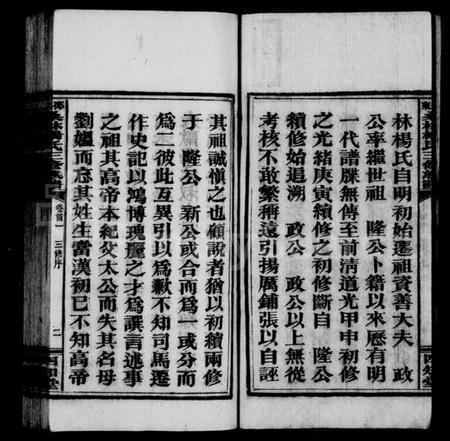 林楊氏自明初始遷祖資善大夫　政
公率繼世祖　隆公卜籍以來歷有明
一代譜牒無傳至前清道光甲申初修
之光緒庚寅續修之初修斷自　隆公
續修始追溯　政公　政公以上無從
考核不敢繁稱遠引揚厲鋪張以自誣
其祖誠慎之也顧說者猶以初續兩修
于　隆公　新公或合而爲一或分而
爲二彼此互異引以爲歉不知司馬遷
作史記以鴻博瑰麗之才爲讓言述事
之祖其高帝本紀父太公而失其名母
劉媼而忘其姓生當漢初已不知高帝
卷首一　三修序
二
四知堂